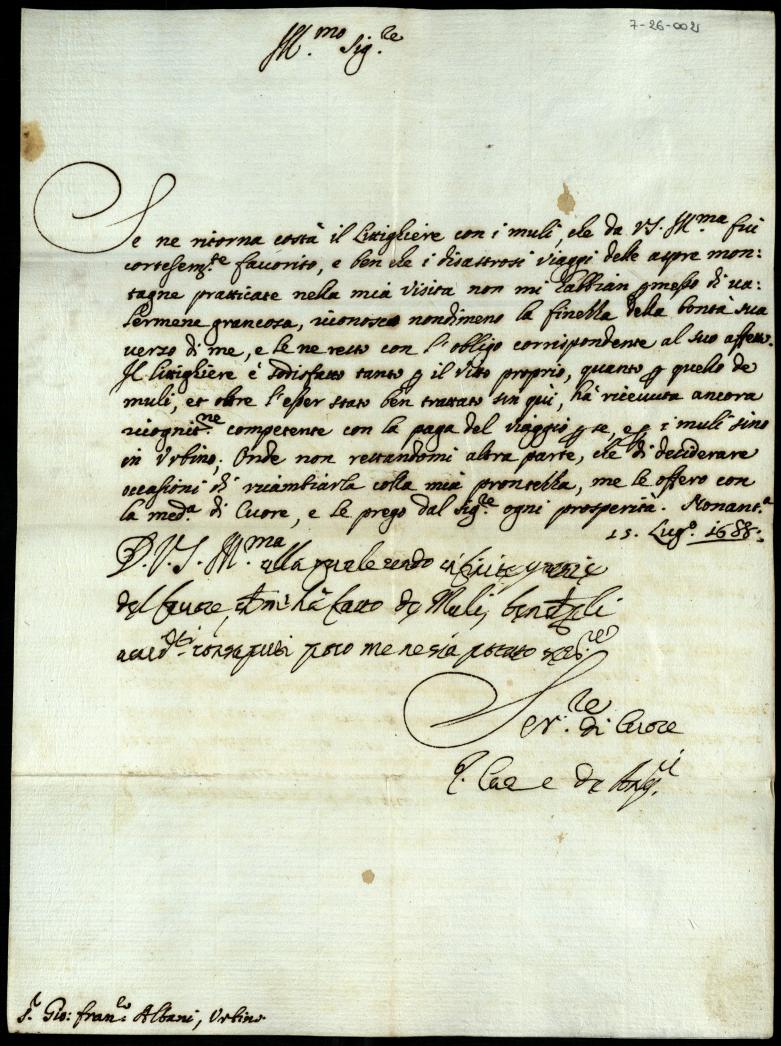 7-26-002
Ill.mo Sig.re
Se ne ritorna costà il Littighiere con i muli, che da VS. Ill.ma fui
cortesem.te favorito, e ben che i disastrosi viaggi delle aspre mon:
tagne pratticate nella mia Visita non mi habbian permesso di va:
lermene gran cosa, riconosco nondimeno la finezza della bontà sua
verso di me, e le ne resto con l'obligo corrispondente al suo affetto.
Il Littighiere è sodisfatto tanto p il vitto proprio, quanto p quello de
muli, et oltre l'esser stato ben trattato sin quì, hà ricevuta ancora
ricognit.ne competente con la paga del viaggio p se, e p i muli sino
in Urbino; Onde non restandomi altra parte, che di desiderare
occasioni di ricambiarla colla mia prontezza, me le offero con
la med.a di Cuore, e le prego dal Sig.re ogni prosperità. Nonant.a
15. Lug.o 1688:
D. V. S. Ill.ma alla quale rendo gratie
del favore, che mi hà fatto de Muli, benche p li
poco me ne sia potuto
Ser.re di Cuore
Car e de Ang.i
S.r Gio: Fran.co Albani, Urbino